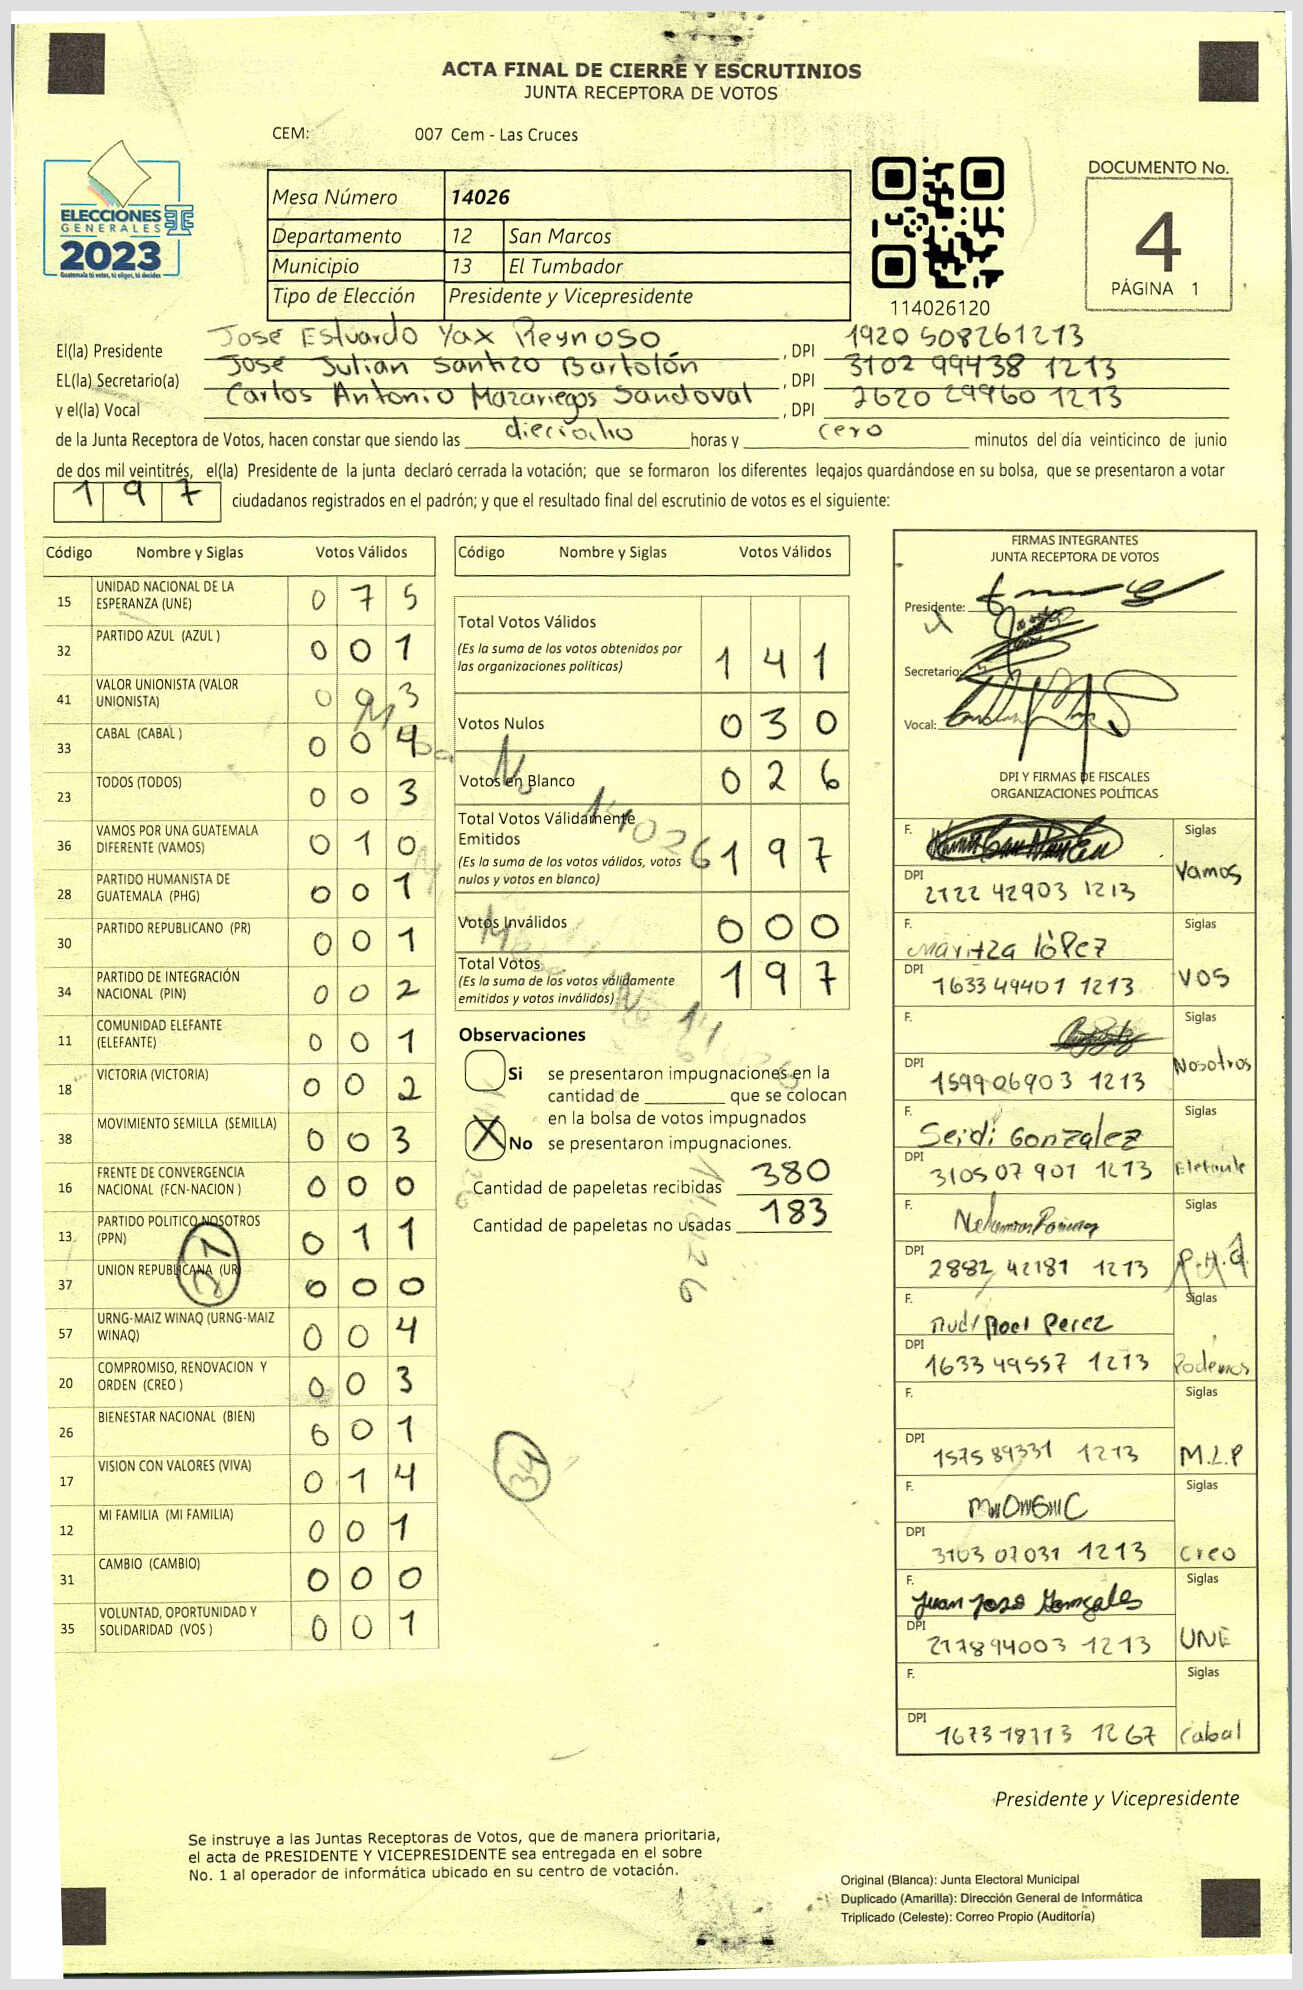 ACTA FINAL DE CIERRE Y ESCRUTINIOS
JUNTA RECEPTORA DE VOTOS
CEM: 007 Cem - Las Cruces
ELECCIONES
GENERALES
2023
Guatemala tú votas, tú eliges, tú decides
Mesa Número 14026
Departamento 12 San Marcos
Municipio 13 El Tumbador
Tipo de Elección Presidente y Vicepresidente
114026120
DOCUMENTO No.
4
PÁGINA 1
El(la) Presidente José Estuardo Yax Reynoso , DPI 1920 508261213
EL(la) Secretario(a) José Julian Santizo Bartolón , DPI 3102 99438 1213
y el(la) Vocal Carlos Antonio Mazariegos Sandoval , DPI 2620 29960 1213
de la Junta Receptora de Votos, hacen constar que siendo las dieciocho horas y cero minutos del día veinticinco de junio
de dos mil veintitrés, el(la) Presidente de la junta declaró cerrada la votación; que se formaron los diferentes legajos guardándose en su bolsa, que se presentaron a votar
197 ciudadanos registrados en el padrón; y que el resultado final del escrutinio de votos es el siguiente:
Código Nombre y Siglas Votos Válidos
15 UNIDAD NACIONAL DE LA ESPERANZA (UNE) 0 7 5
32 PARTIDO AZUL (AZUL ) 0 0 1
41 VALOR UNIONISTA (VALOR UNIONISTA) 0 3
33 CABAL (CABAL ) 0 0 4
23 TODOS (TODOS) 0 0 3
36 VAMOS POR UNA GUATEMALA DIFERENTE (VAMOS) 0 1 0
28 PARTIDO HUMANISTA DE GUATEMALA (PHG) 0 0 1
30 PARTIDO REPUBLICANO (PR) 0 0 1
34 PARTIDO DE INTEGRACIÓN NACIONAL (PIN) 0 0 2
11 COMUNIDAD ELEFANTE (ELEFANTE) 0 0 1
18 VICTORIA (VICTORIA) 0 0 2
38 MOVIMIENTO SEMILLA (SEMILLA) 0 0 3
16 FRENTE DE CONVERGENCIA NACIONAL (FCN-NACION ) 0 0 0
13 PARTIDO POLITICO NOSOTROS (PPN) 0 1 1
37 UNION REPUBLICANA (UR) 0 0 0
57 URNG-MAIZ WINAQ (URNG-MAIZ WINAQ) 0 0 4
20 COMPROMISO, RENOVACION Y ORDEN (CREO ) 0 0 3
26 BIENESTAR NACIONAL (BIEN) 0 0 1
17 VISION CON VALORES (VIVA) 0 1 4
12 MI FAMILIA (MI FAMILIA) 0 0 1
31 CAMBIO (CAMBIO) 0 0 0
35 VOLUNTAD, OPORTUNIDAD Y SOLIDARIDAD (VOS ) 0 0 1
Código Nombre y Siglas Votos Válidos
Total Votos Válidos
(Es la suma de los votos obtenidos por
las organizaciones políticas) 1 4 1
Votos Nulos 0 3 0
Votos en Blanco 0 2 6
Total Votos Válidamente
Emitidos
(Es la suma de los votos válidos, votos
nulos y votos en blanco) 1 9 7
Votos Inválidos 0 0 0
Total Votos
(Es la suma de los votos válidamente
emitidos y votos inválidos) 1 9 7
No 14026
Mesa No 14026
14026
Observaciones
Si se presentaron impugnaciones en la
cantidad de ________ que se colocan
en la bolsa de votos impugnados
X No se presentaron impugnaciones.
Cantidad de papeletas recibidas 380
Cantidad de papeletas no usadas 183
34
FIRMAS INTEGRANTES
JUNTA RECEPTORA DE VOTOS
Presidente:
Secretario:
Vocal:
DPI Y FIRMAS DE FISCALES
ORGANIZACIONES POLÍTICAS
F. Siglas
DPI 2122 42903 1213 Vamos
F. Maritza lópez Siglas
DPI 1633 49401 1213 VOS
F. Siglas
DPI 1599 06903 1213 Nosotros
F. Seidi Gonzalez Siglas
DPI 3105 07 901 1213 Elefante
F. Siglas
DPI 2882 42181 1213 P.H.G.
F. Perez Siglas
DPI 1633 49557 1213 Podemos
F. Siglas
DPI 1575 89331 1213 M.L.P
F. Siglas
DPI 3103 07031 1213 Creo
F. Juan Jose Gonzales Siglas
DPI 2178 94003 1213 UNE
F. Siglas
DPI 1673 18113 1267 Cabal
Presidente y Vicepresidente
Se instruye a las Juntas Receptoras de Votos, que de manera prioritaria,
el acta de PRESIDENTE Y VICEPRESIDENTE sea entregada en el sobre
No. 1 al operador de informática ubicado en su centro de votación.
Original (Blanca): Junta Electoral Municipal
Duplicado (Amarilla): Dirección General de Informática
Triplicado (Celeste): Correo Propio (Auditoría)